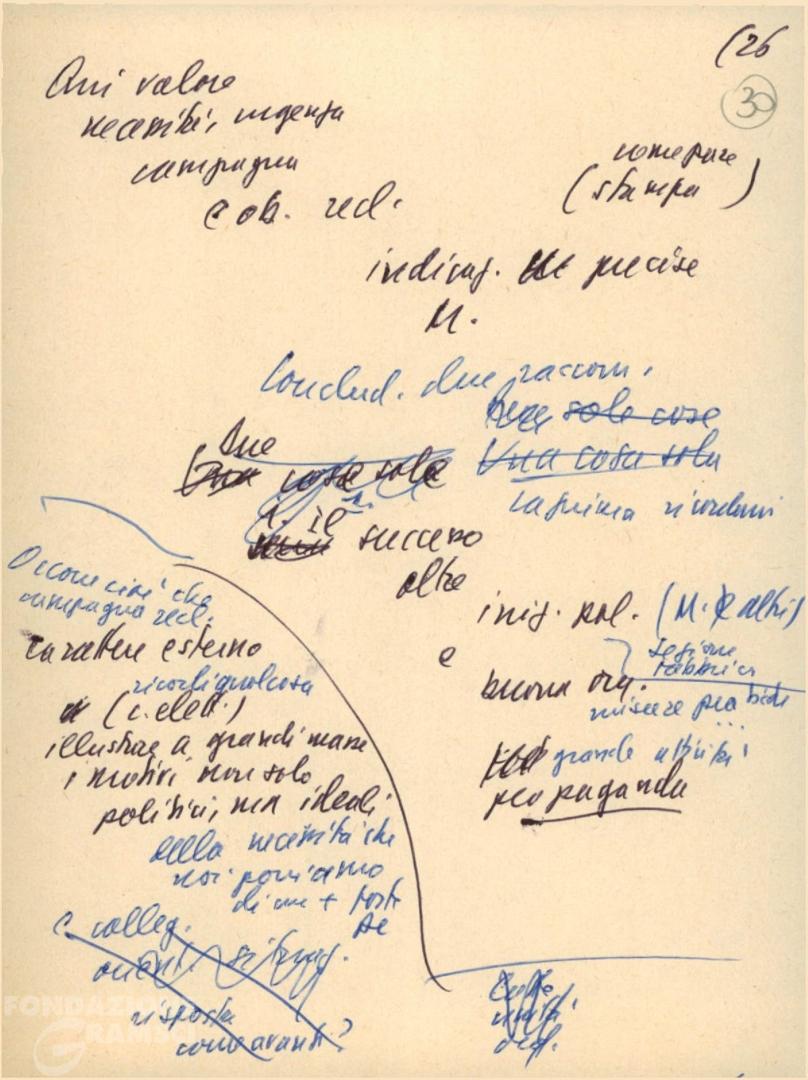 (26
30
Qui valore
necessità, urgenza
campagna
e ob. recl.
come pure
(stampa)
indicaz. precise
M.
Conclud. due raccom.
due sole cose
Una cosa sola
Due
Una cosa sola
la prima ricordarvi
1. il
successo
oltre
iniz. pol. (M. e altri)
e
buona org.
sezione
fabbrica
misure pra
grande attività
propaganda
Occorre cioè che
campagna recl.
carattere esterno
ricordi qualcosa
(c. elett.)
illustrare a grandi masse
i motivi non solo
politici, ma ideali
della necessità che
noi poniamo
di un + forte
P
e colleg.
orient. situaz.
risposta
come avanti?
FONDAZIONE
GRAMSCI